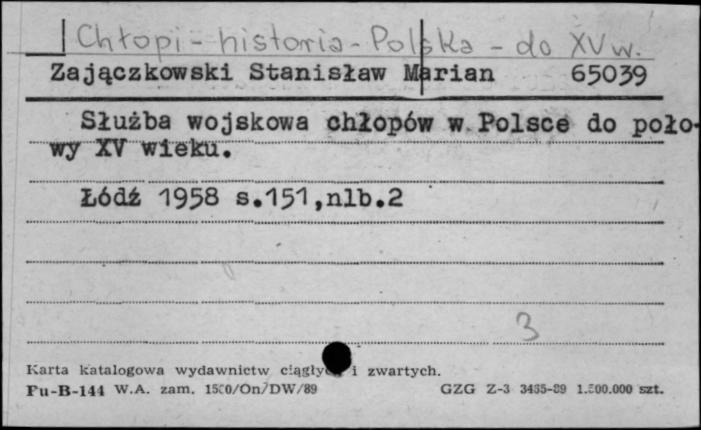 Chłopi - historia - Polska - do XV w.
Zajączkowski Stanisław Marian 65039
Służba wojskowa chłopów w Polsce do poło-
wy XV wieku.
Łódź 1958 s.151,nlb.2
3
Karta katalogowa wydawnictw ciągłych i zwartych.
Pu-B-144 W.A. zam. 1500/On/DW/89 GZG Z-3 3435-89 1.500.000 szt.